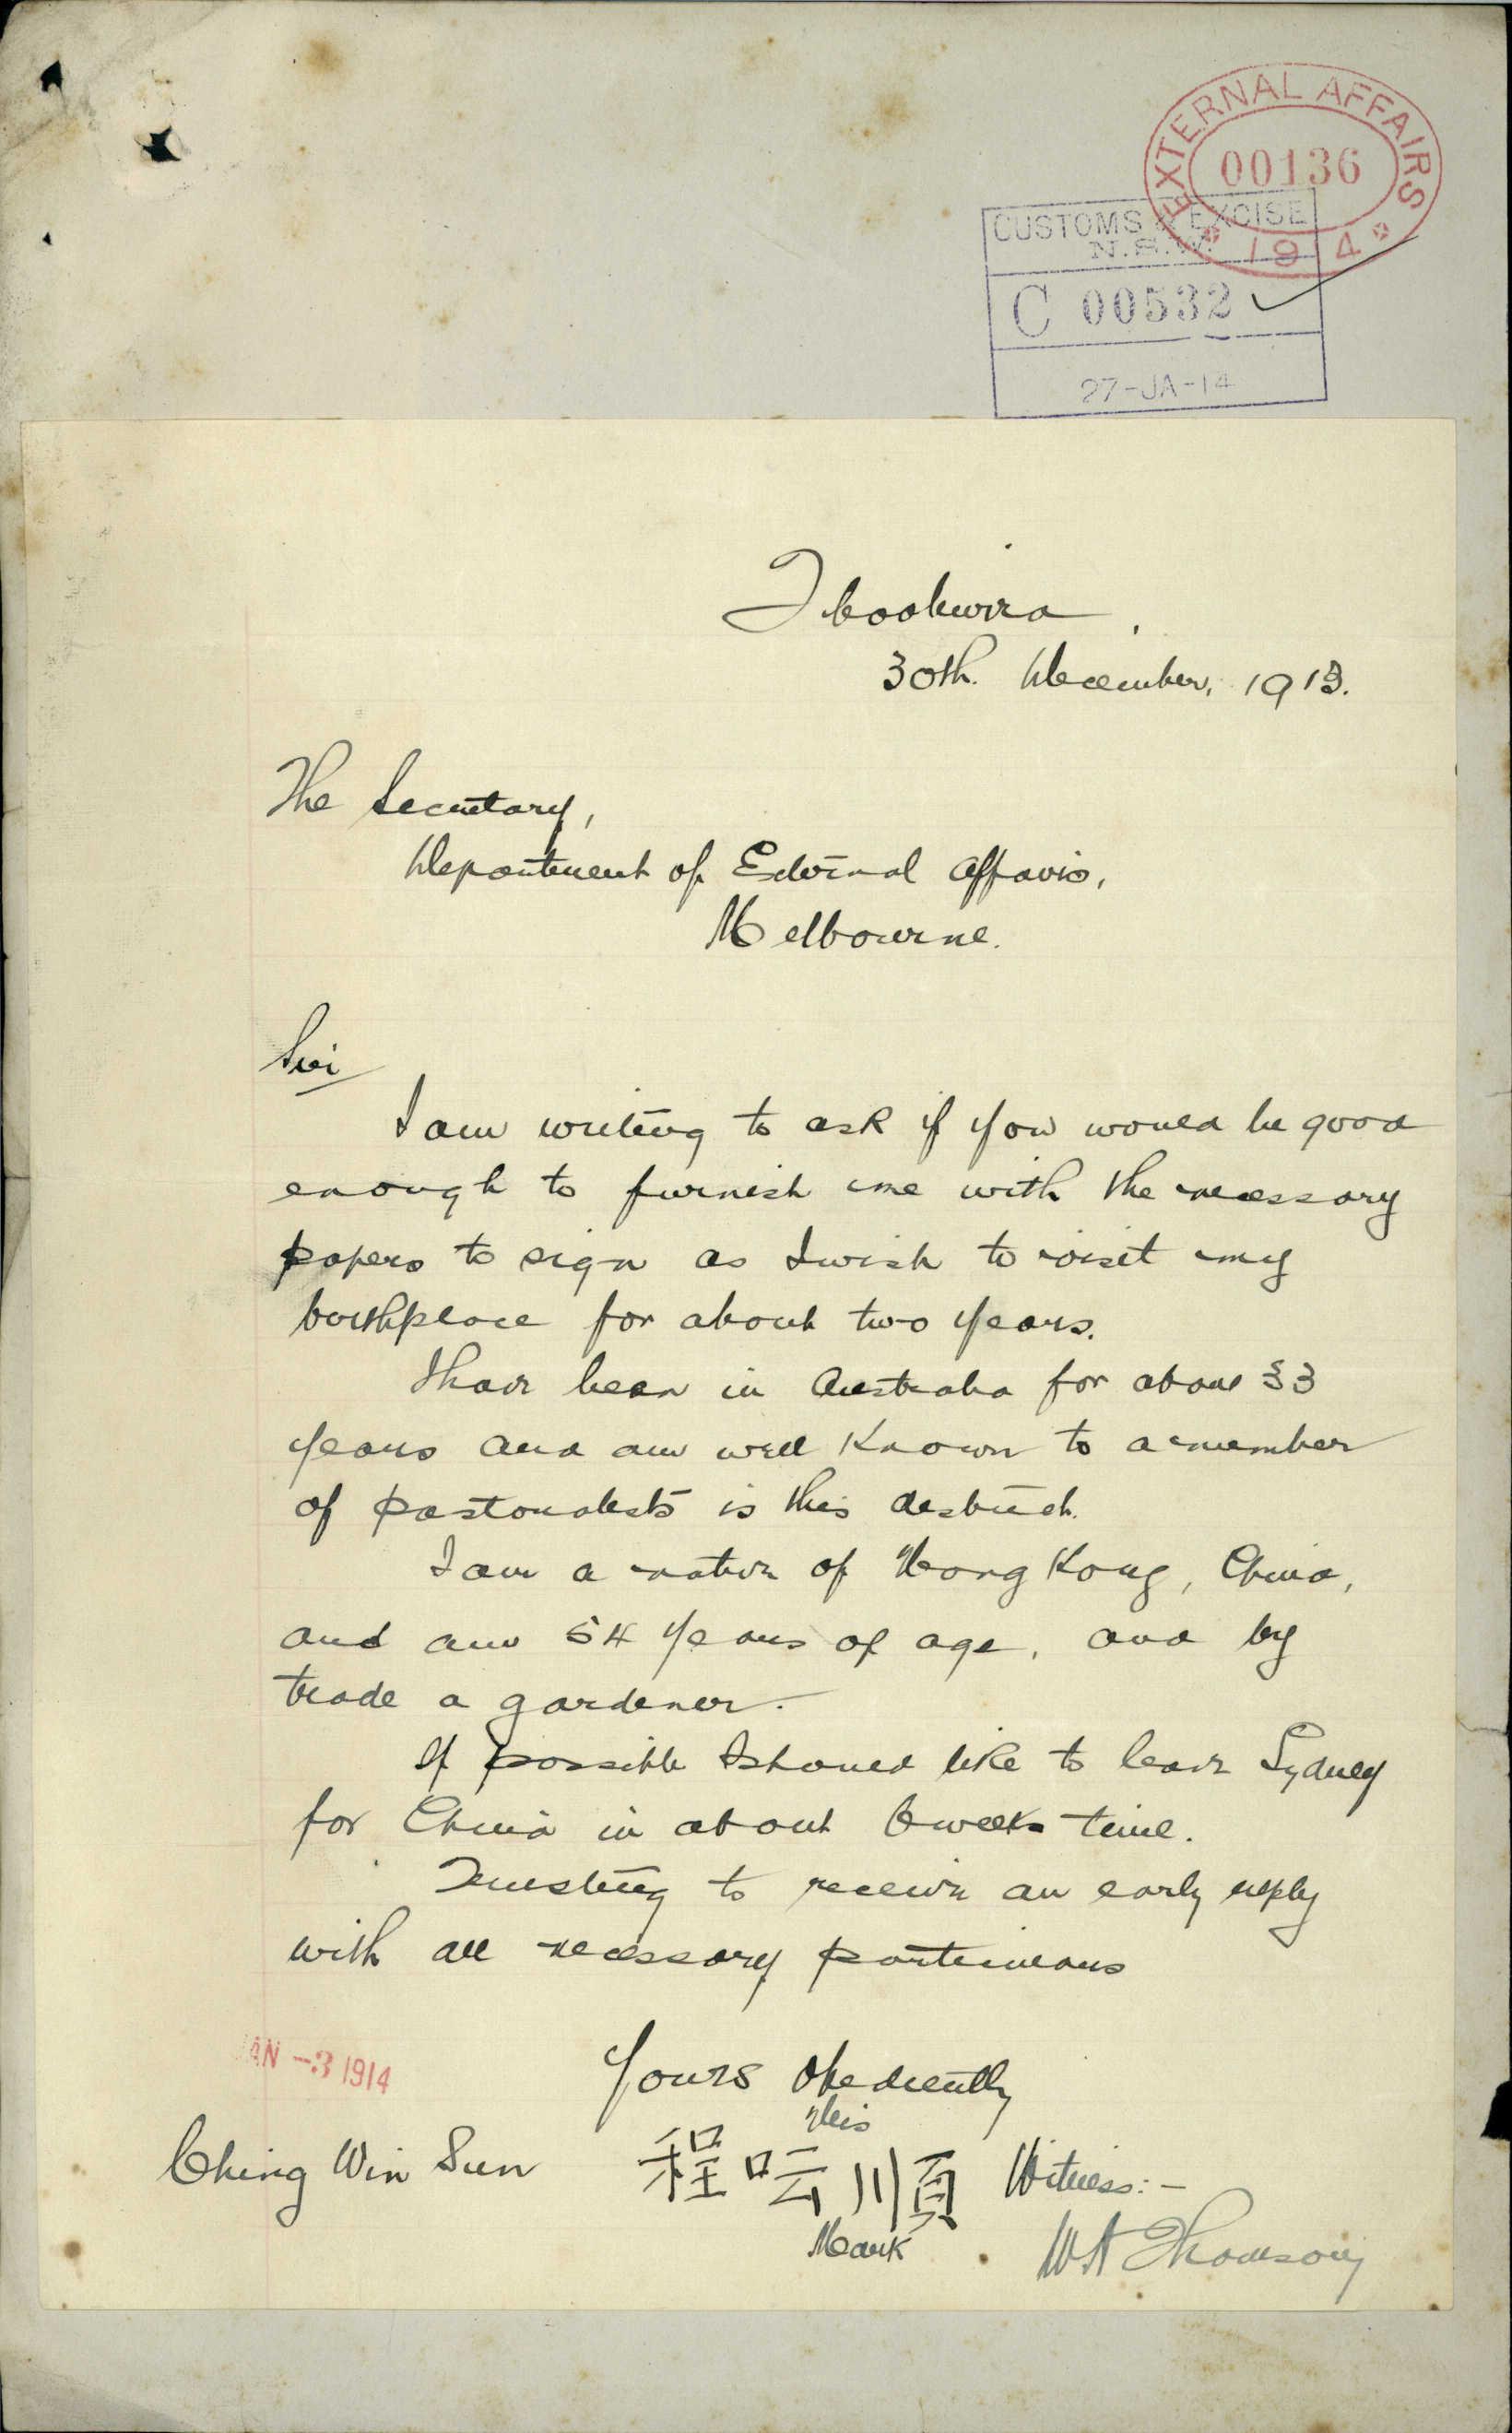 EXTERNAL AFFAIRS
00136
1914
CUSTOMS & EXCISE
N.S.W.
C 00532
27-JA-14
30th. December, 1913.
The Secretary,
Department of External Affairs,
Melbourne.
Sir
I am writing to ask if you would be good
enough to furnish me with the necessary
papers to sign as I wish to visit my
birthplace for about two years.
I have been in Australia for about 33
years and am well known to a number
of pastoralists in this district.
I am a native of Hong Kong, China,
and am 54 years of age, and by
trade a gardener.
If possible I should like to leave Sydney
for China in about 6 weeks time.
Trusting to receive an early reply
with all necessary particulars
JAN -3 1914
Yours Obediently
His
Ching Win Sun 程呍順 Witness:-
Mark
W A Thomson